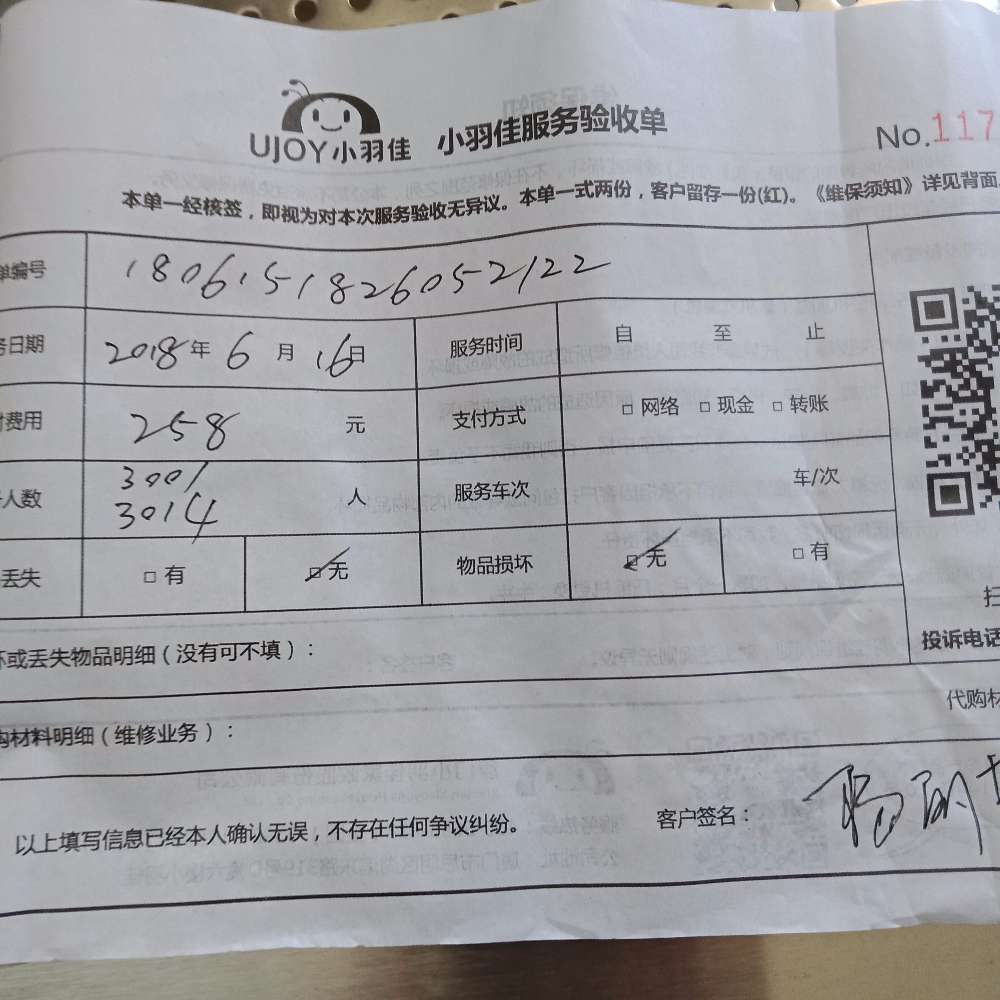 UJOY小羽佳 小羽佳服务验收单 No.117
本单一经核签，即视为对本次服务验收无异议。本单一式两份，客户留存一份(红)。《维保须知》详见背面。
单编号 180615182605-2122
务日期 2018年 6 月 16日 服务时间 自 至 止
付费用 258 元 支付方式 □ 网络 □ 现金 □ 转账
人数 3001 3014 人 服务车次 车/次
丢失 □ 有 □ 无 物品损坏 □ 无 □ 有
扫
坏或丢失物品明细（没有可不填）：
投诉电话
代购材
购材料明细（维修业务）：
以上填写信息已经本人确认无误，不存在任何争议纠纷。 客户签名：